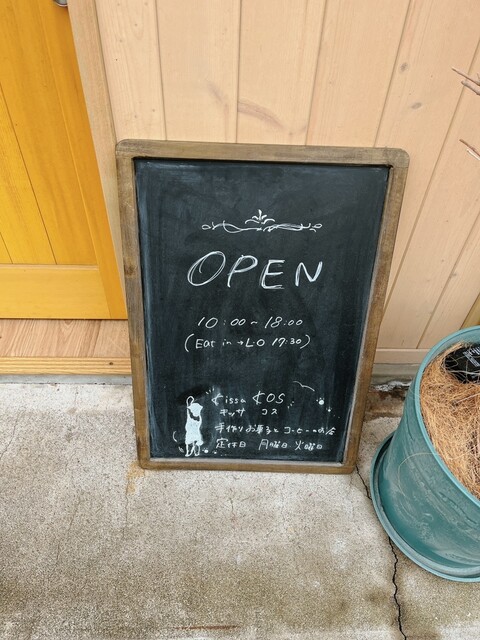 OPEN
10:00~18:00
(Eat in→L・O 17:30)
Kissa KOS
キッサ コス
手作りお菓子とコーヒーのお店
定休日 月曜日 火曜日